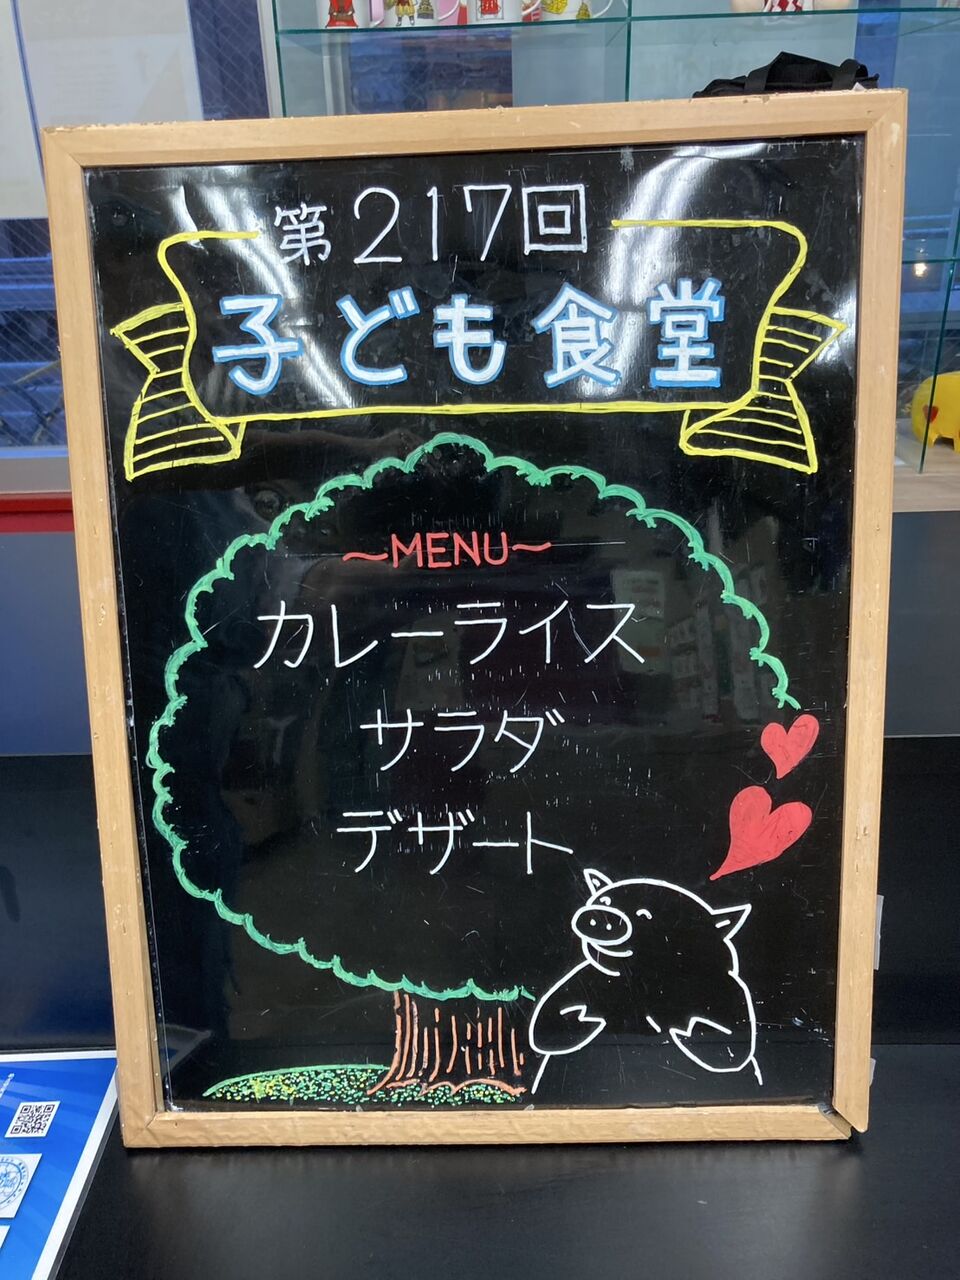 第217回
子ども食堂
～MENU～
カレーライス
サラダ
デザート